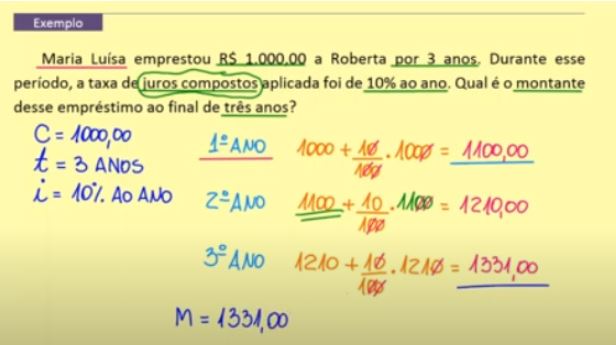 Exemplo
Maria Luísa emprestou R$ 1.000,00 a Roberta por 3 anos. Durante esse
período, a taxa de juros compostos aplicada foi de 10% ao ano. Qual é o montante
desse empréstimo ao final de três anos?
C = 1000,00
t = 3 ANOS
i = 10% AO ANO
1º ANO 1000 + 10/100 . 1000 = 1100,00
2º ANO 1100 + 10/100 . 1100 = 1210,00
3º ANO 1210 + 10/100 . 1210 = 1331,00
M = 1331,00